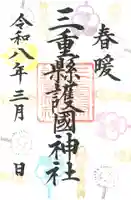 春暖
三重縣護國神社
令和八年三月 日